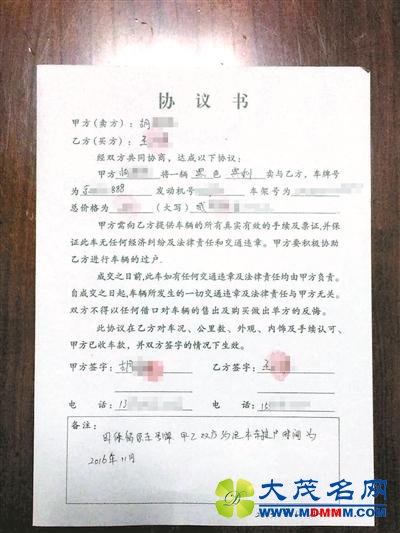 协 议 书
甲方(卖方)：胡
乙方(买方)：王
经双方共同协商，达成以下协议：
甲方 胡 将一辆 黑 色 奥利 卖与乙方，车牌号
为 888 发动机号 车架号为
总价格为 (大写) 贰
甲方需向乙方提供车辆的所有真实有效的手续及票证,并保
证此车无任何经济纠纷及法律责任和交通违章。甲方要积极协助
乙方进行车辆的过户.
成交之日前,此车如有任何交通违章及法律责任均由甲方负责。
自成交之日起,车辆所发生的一切交通违章及法律责任与甲方无关。
双方不得以任何借口对车辆的售出及购买做出单方的反悔。
此协议在乙方对车况、公里数、外观、内饰及手续认可、
甲方已收车款，并双方签字的情况下生效。
甲方签字：胡 乙方签字：王
电 话：13 电 话：15
备注：
因保留原车号牌 甲乙双方约定本车过户时间为
2016年11月
大茂名网
WWW.MDMMM.COM